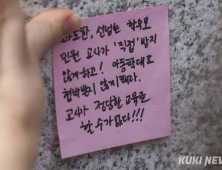 과도한, 선넘는 학부모
민원 교사가 '직접' 받지
않게 하고! 아동학대로
협박받지 않게 해라.
교사가 정당한 교육을
할 수가 없다!!!
KUKI NEWS